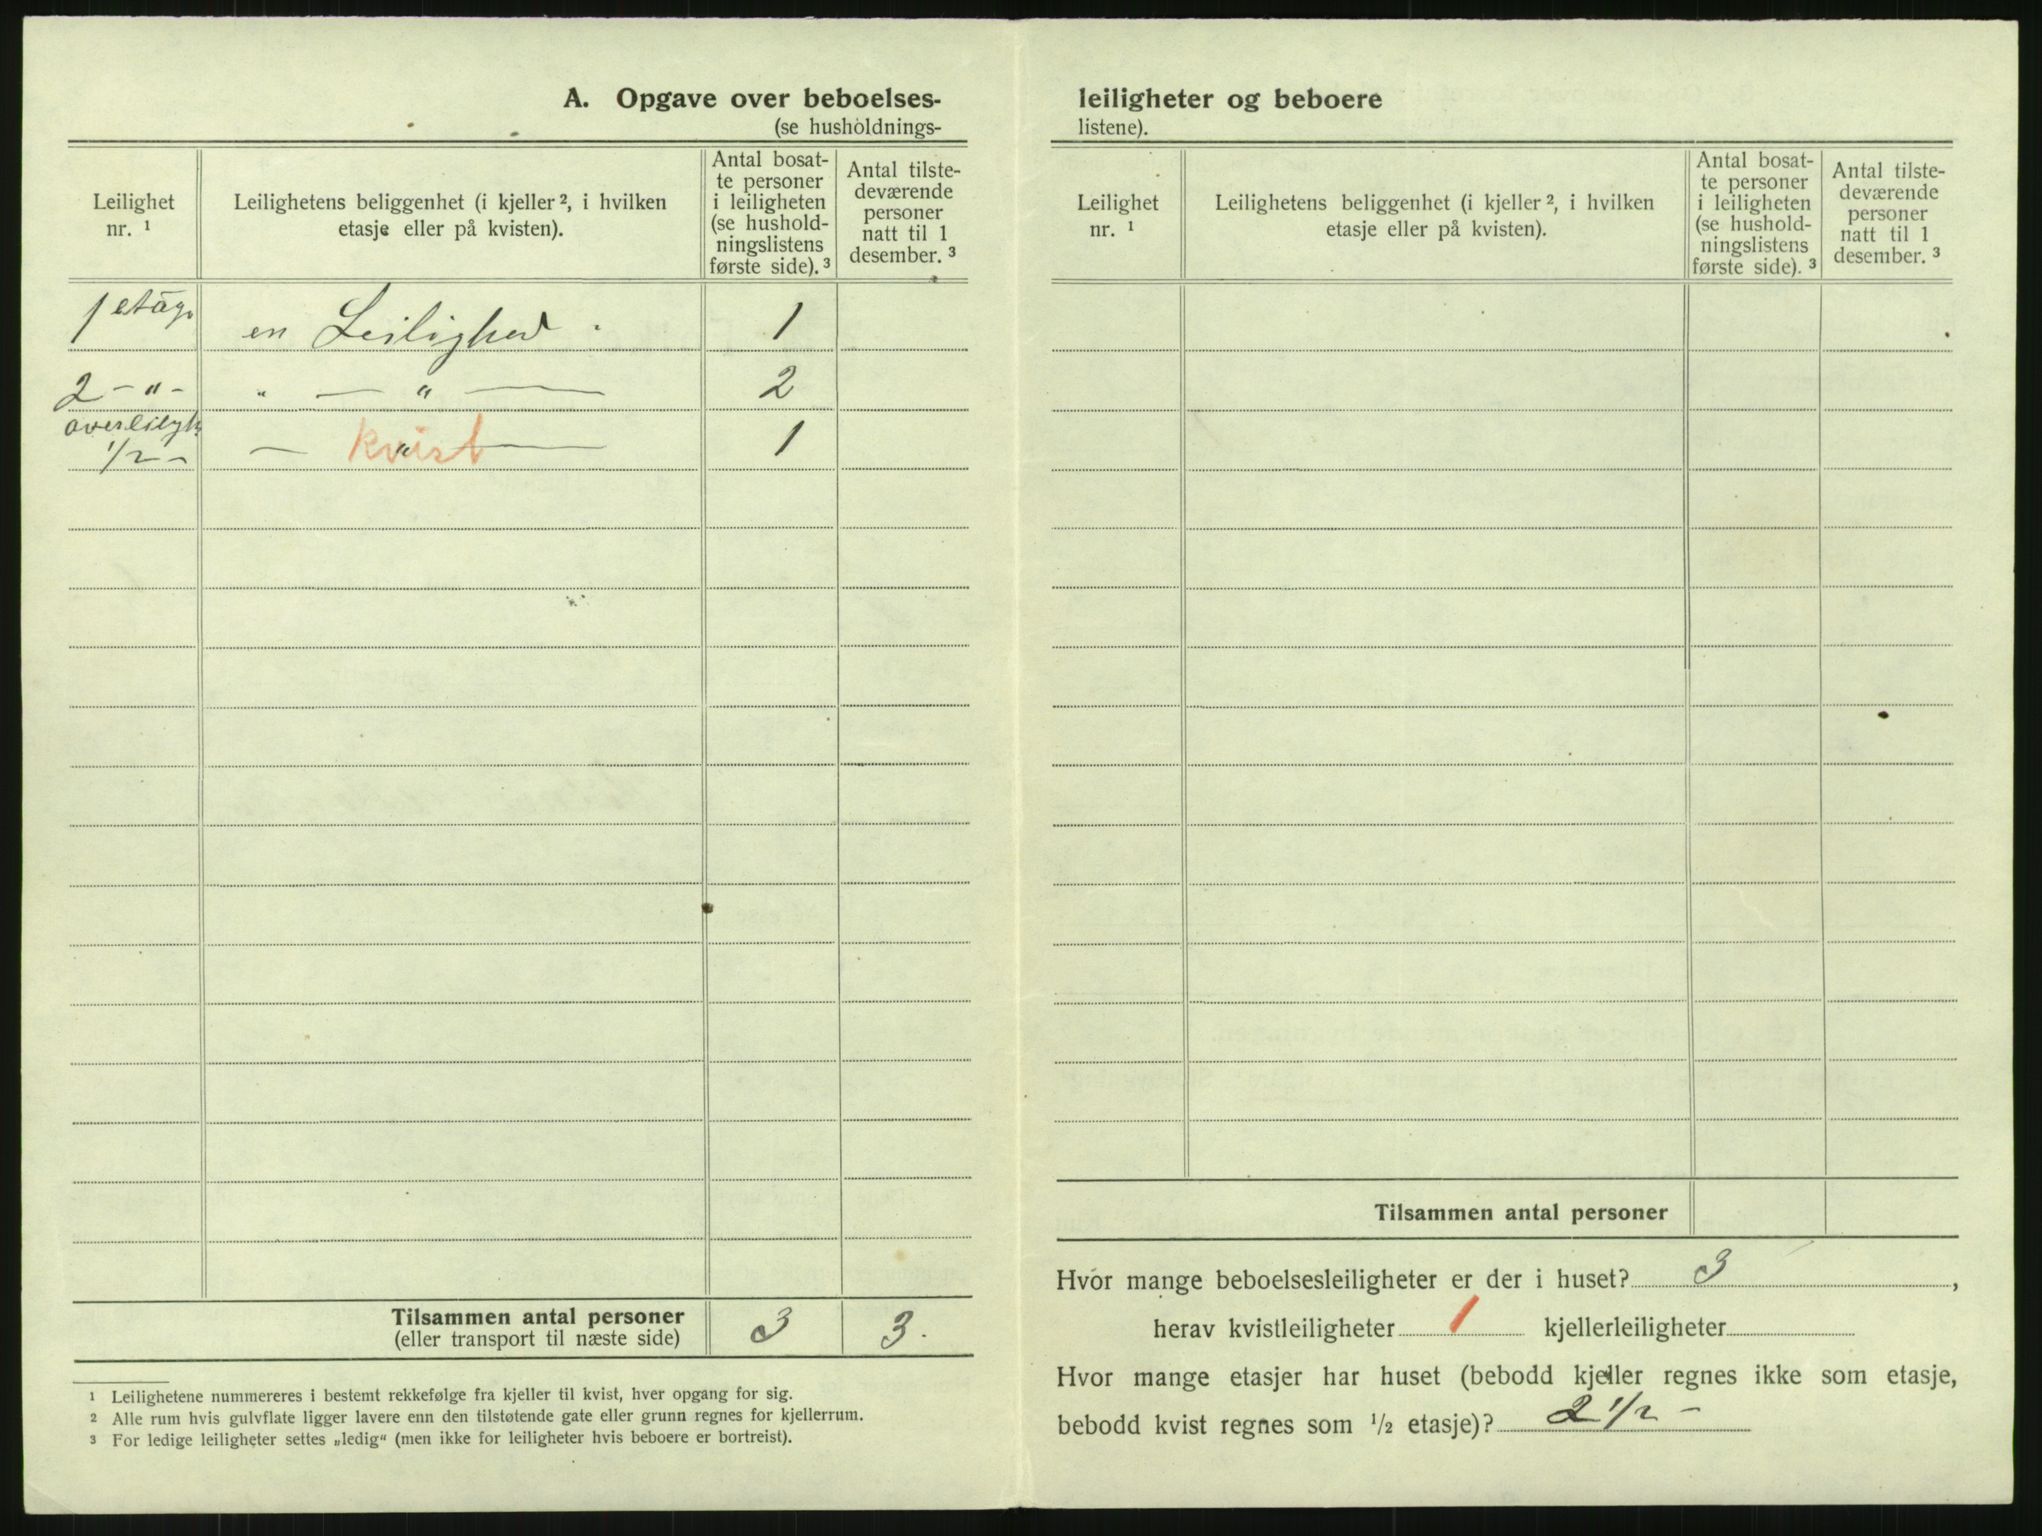 A. Opgave over beboelses-
(se husholdnings-
Leilighet nr. ¹
Leilighetens beliggenhet (i kjeller ², i hvilken etasje eller på kvisten).
Antal bosat-te personer i leiligheten (se hushold-ningslistens første side). ³
Antal tilste-deværende personer natt til 1 desember. ³
1 etag. en Leilighed . 1
2 - " - " — " — 2
overleilygh
1/2 - — " — kvist 1
Tilsammen antal personer 3 3.
(eller transport til næste side)
¹ Leilighetene nummereres i bestemt rekkefølge fra kjeller til kvist, hver opgang for sig.
² Alle rum hvis gulvflate ligger lavere enn den tilstøtende gate eller grunn regnes for kjellerrum.
³ For ledige leiligheter settes „ledig“ (men ikke for leiligheter hvis beboere er bortreist).
leiligheter og beboere
listene).
Leilighet nr. ¹
Leilighetens beliggenhet (i kjeller ², i hvilken etasje eller på kvisten).
Antal bosat-te personer i leiligheten (se hushold-ningslistens første side). ³
Antal tilste-deværende personer natt til 1 desember. ³
Tilsammen antal personer
Hvor mange beboelsesleiligheter er der i huset? 3 ,
herav kvistleiligheter 1 kjellerleiligheter
Hvor mange etasjer har huset (bebodd kjeller regnes ikke som etasje,
bebodd kvist regnes som ½ etasje)? 2 1/2 -